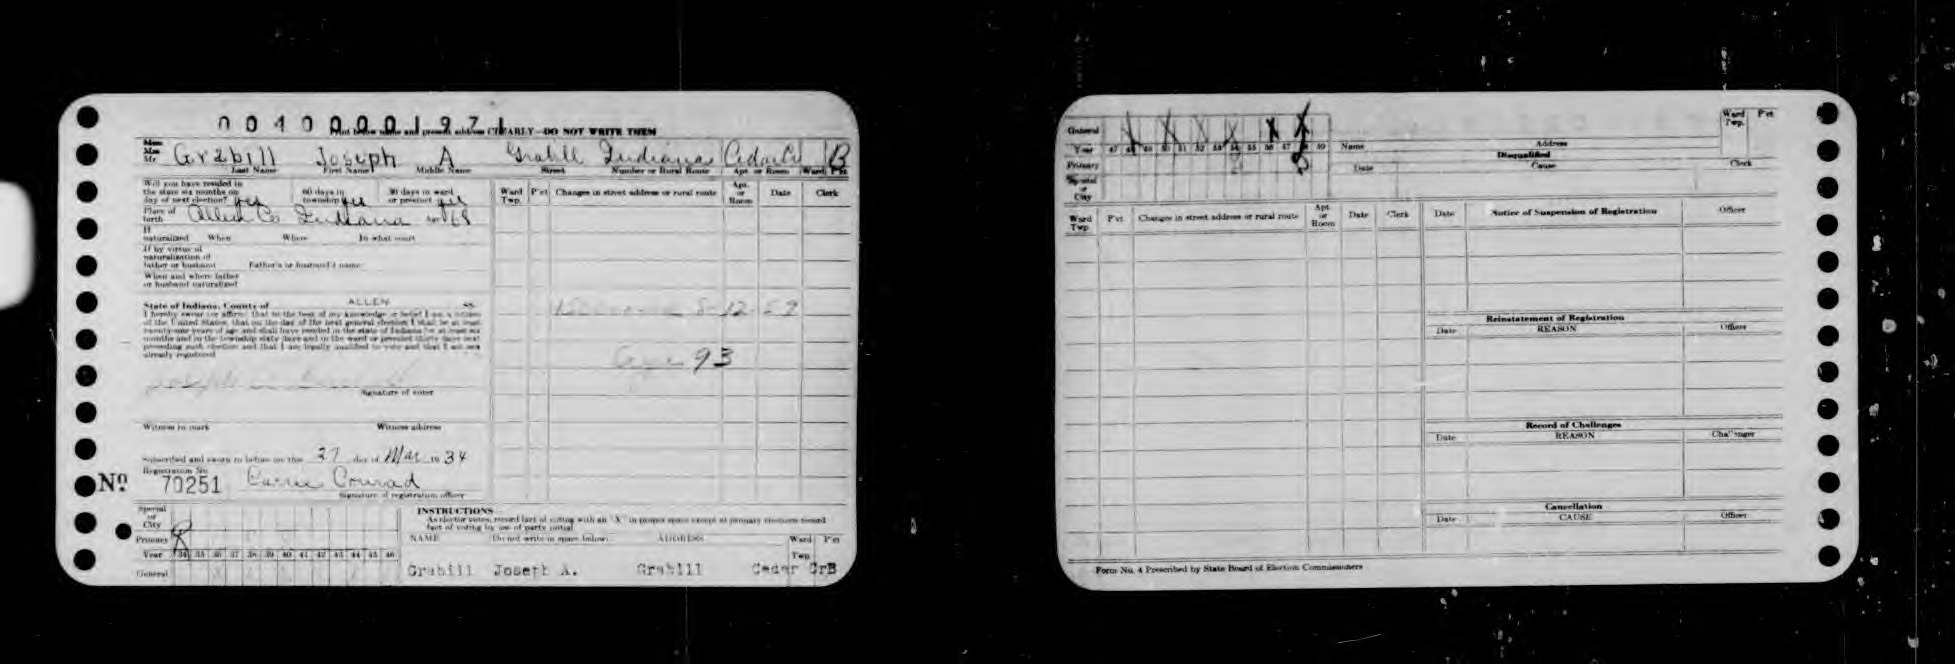 00400001971
Print below name and present address CLEARLY—DO NOT WRITE THEM
Miss
Mrs
Mr. Grabill Joseph A Grabill Indiana Cedar Cr B
Last Name First Name Middle Name Street Number or Rural Route Apt. or Room Ward P'ct
Will you have resided in
the state six months on
day of next election? yes
60 days in
township yes
30 days in ward
or precinct yes
Place of
birth Allen Co Indiana Age 68
If
naturalized When Where In what court
If by virtue of
naturalization of
father or husband Father's or husband's name
When and where father
or husband naturalized
State of Indiana, County of ALLEN ss.
I hereby swear (or affirm) that to the best of my knowledge or belief I am a citizen
of the United States, that on the day of the next general election I shall be at least
twenty-one years of age and shall have resided in the state of Indiana for at least six
months and in the township sixty days and in the ward or precinct thirty days next
preceding such election and that I am legally qualified to vote and that I am not
already registered
Joseph
Signature of voter
Witness to mark Witness address
Subscribed and sworn to before me this 27 day of Mar 19 34
Registration No.
No 70251 Carrie Conrad
Signature of registration officer
Ward
Twp. P'ct Changes in street address or rural route Apt.
or
Room Date Clerk
Deceased 8-12-59
Age 93
Special
or
City
Primary R
Year 34 35 36 37 38 39 40 41 42 43 44 45 46
General
INSTRUCTIONS
As elector votes, record fact of voting with an "X" in proper space except at primary elections record
fact of voting by use of party initial
NAME (Do not write in space below) ADDRESS Ward Twp. P'ct
Grabill Joseph A. Grabill Cedar CrB
General
Year 47 48 49 50 51 52 53 54 55 56 57 58 59
Primary
Special
or
City
Name Address
Ward
Twp. P'ct
Disqualified
Date Cause Clerk
Ward
Twp P'ct Changes in street address or rural route Apt
or
Room Date Clerk
Date Notice of Suspension of Registration Officer
Reinstatement of Registration
Date REASON Officer
Record of Challenges
Date REASON Challenger
Cancellation
Date CAUSE Officer
Form No. 4 Prescribed by State Board of Election Commissioners